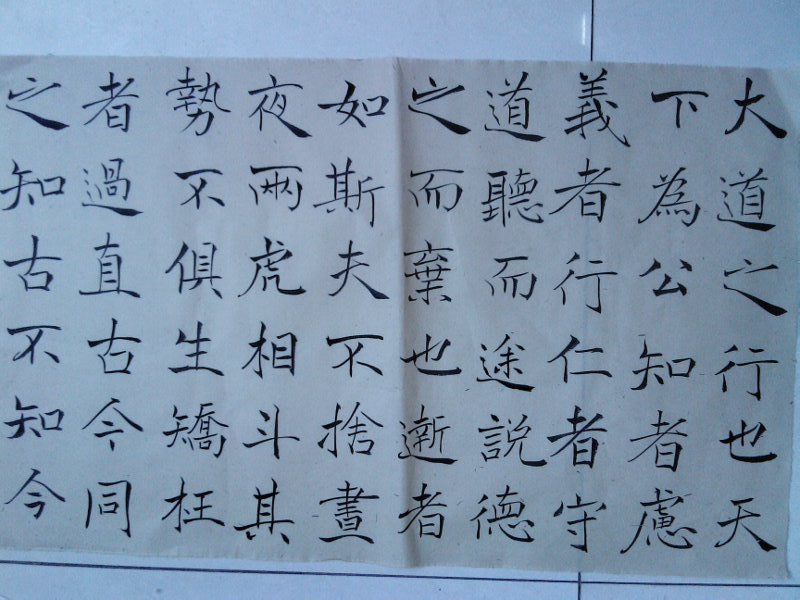 大道之行也天
下為公知者慮
義者行仁者守
道聽而途說德
之而棄也逝者
如斯夫不捨晝
夜兩虎相斗其
勢不俱生矯枉
者過直古今同
之知古不知今